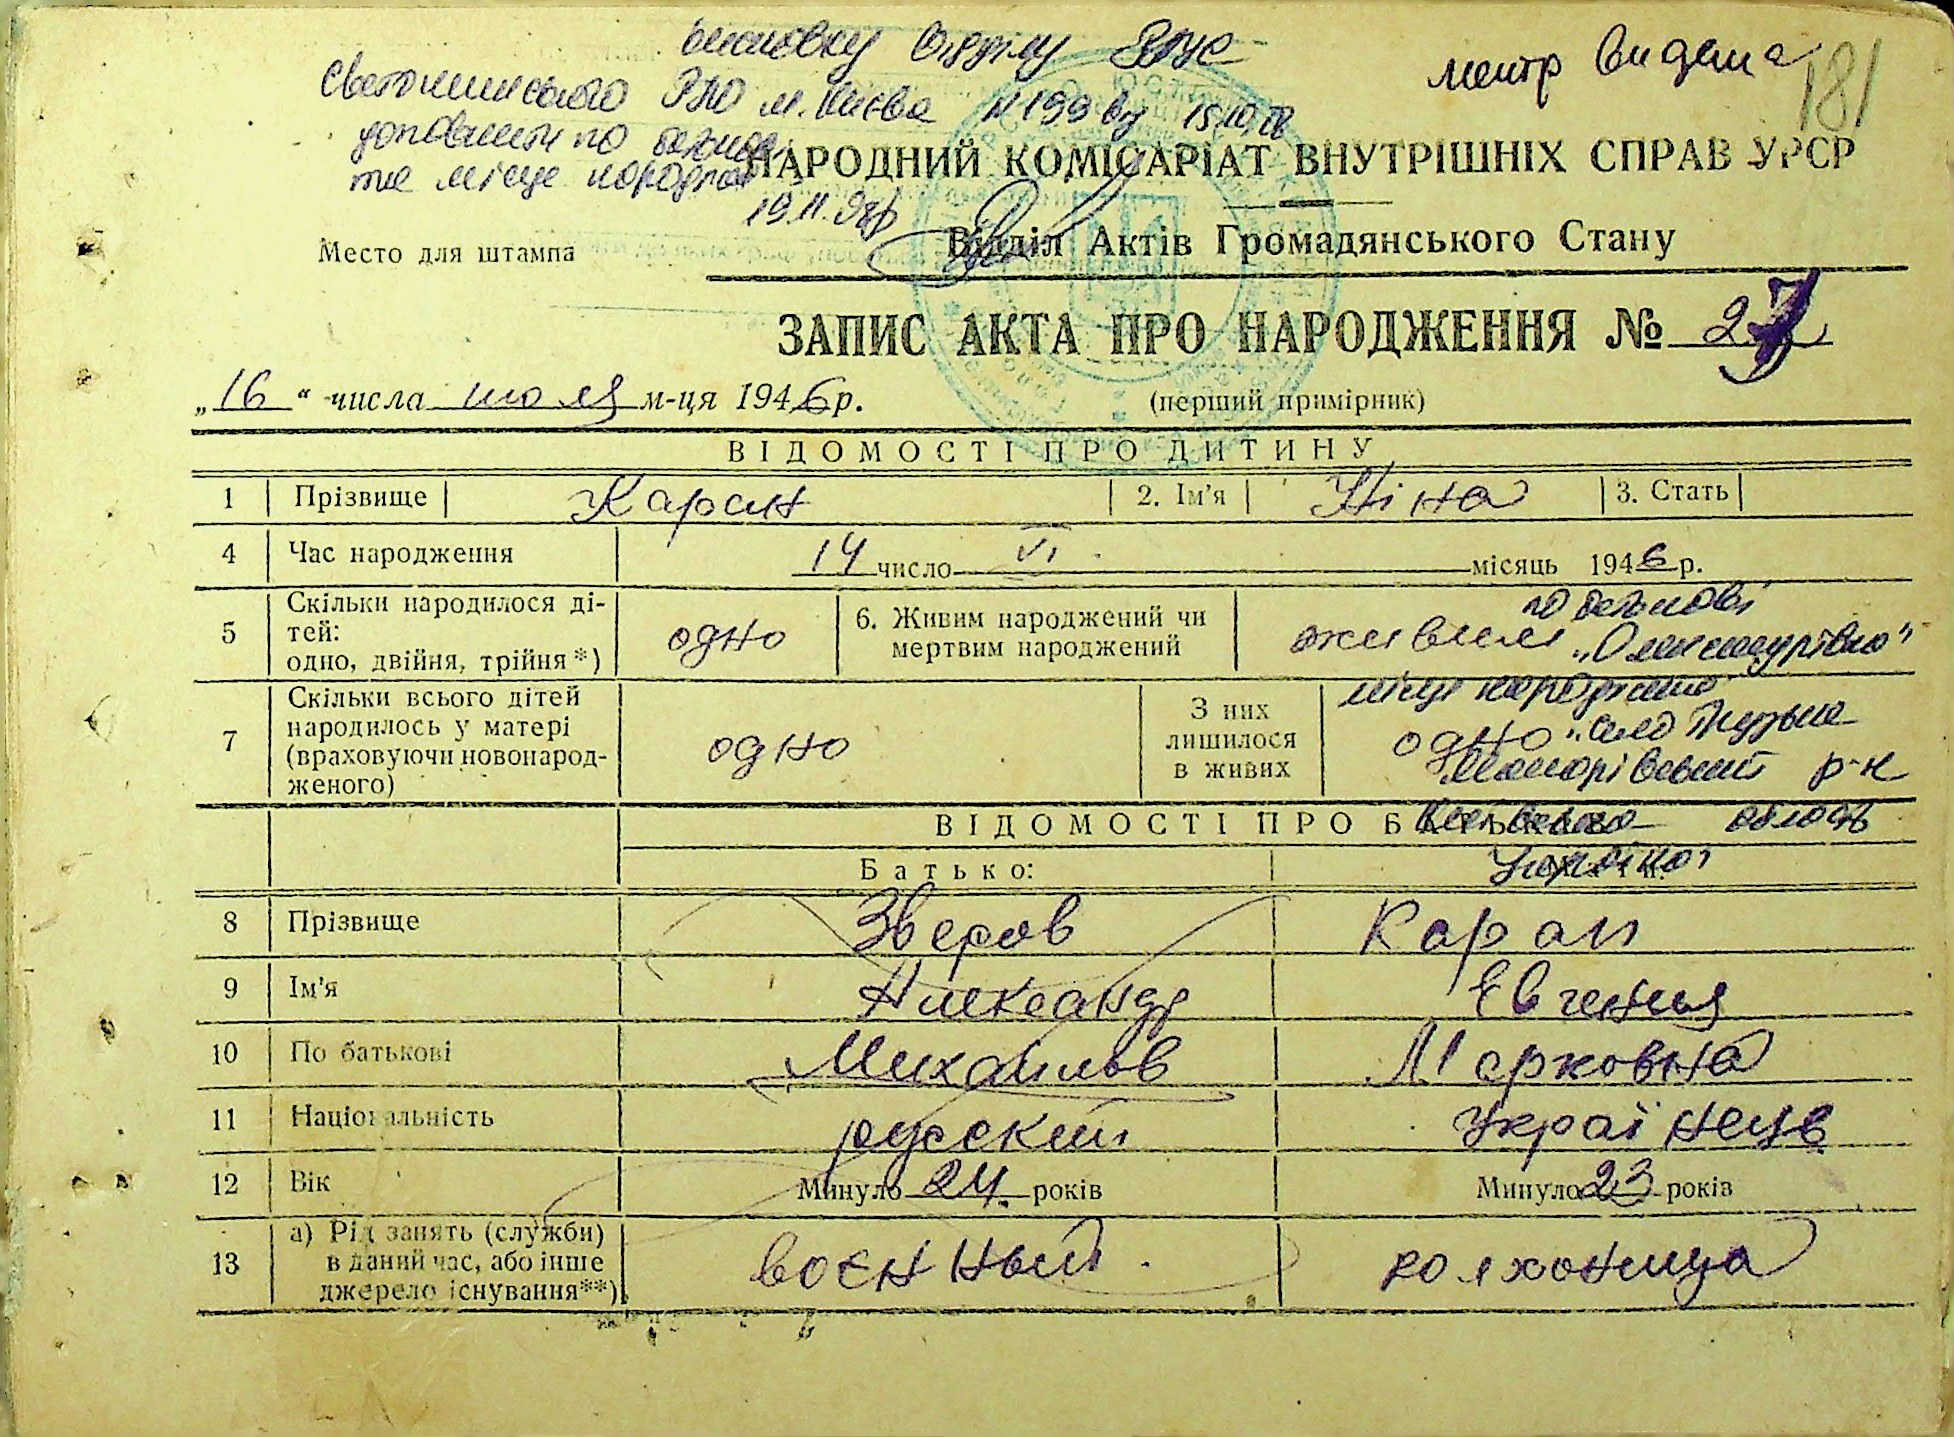 висновку відділу ЗАГС
Святошинського РУЮ м. Києва № 199 від 15.10.
доповнити по батькові
та місце народження
19.11.98р
метр видана
181
НАРОДНИЙ КОМІСАРІАТ ВНУТРІШНІХ СПРАВ УРСР
Место для штампа
Відділ Актів Громадянського Стану
ЗАПИС АКТА ПРО НАРОДЖЕННЯ № 27
„16“ числа июля м-ця 1946 р.
(перший примірник)
ВІДОМОСТІ ПРО ДИТИНУ
1 Прізвище Каран 2. Ім'я Ніна 3. Стать
4 Час народження 14 число VI місяць 1946 р.
5 Скільки народилося ді-
тей:
одно, двійня, трійня*) одно 6. Живим народжений чи
мертвим народжений живим
по батькові
„Олександрівна"
7 Скільки всього дітей
народилось у матері
(враховуючи новонарод-
женого) одно З них
лишилося
в живих одно
місце народження
"село
Макарівський р-н
Київська область
Україна
ВІДОМОСТІ ПРО БАТЬКІВ
Батько:
8 Прізвище Зверов Каран
9 Ім'я Александр Евгения
10 По батькові Михайлов Марковна
11 Національність русский Україньцв
12 Вік Минуло 24 років Минуло 23 років
13 а) Рід занять (служби)
в даний час, або інше
джерело існування**) воєнный колхозница